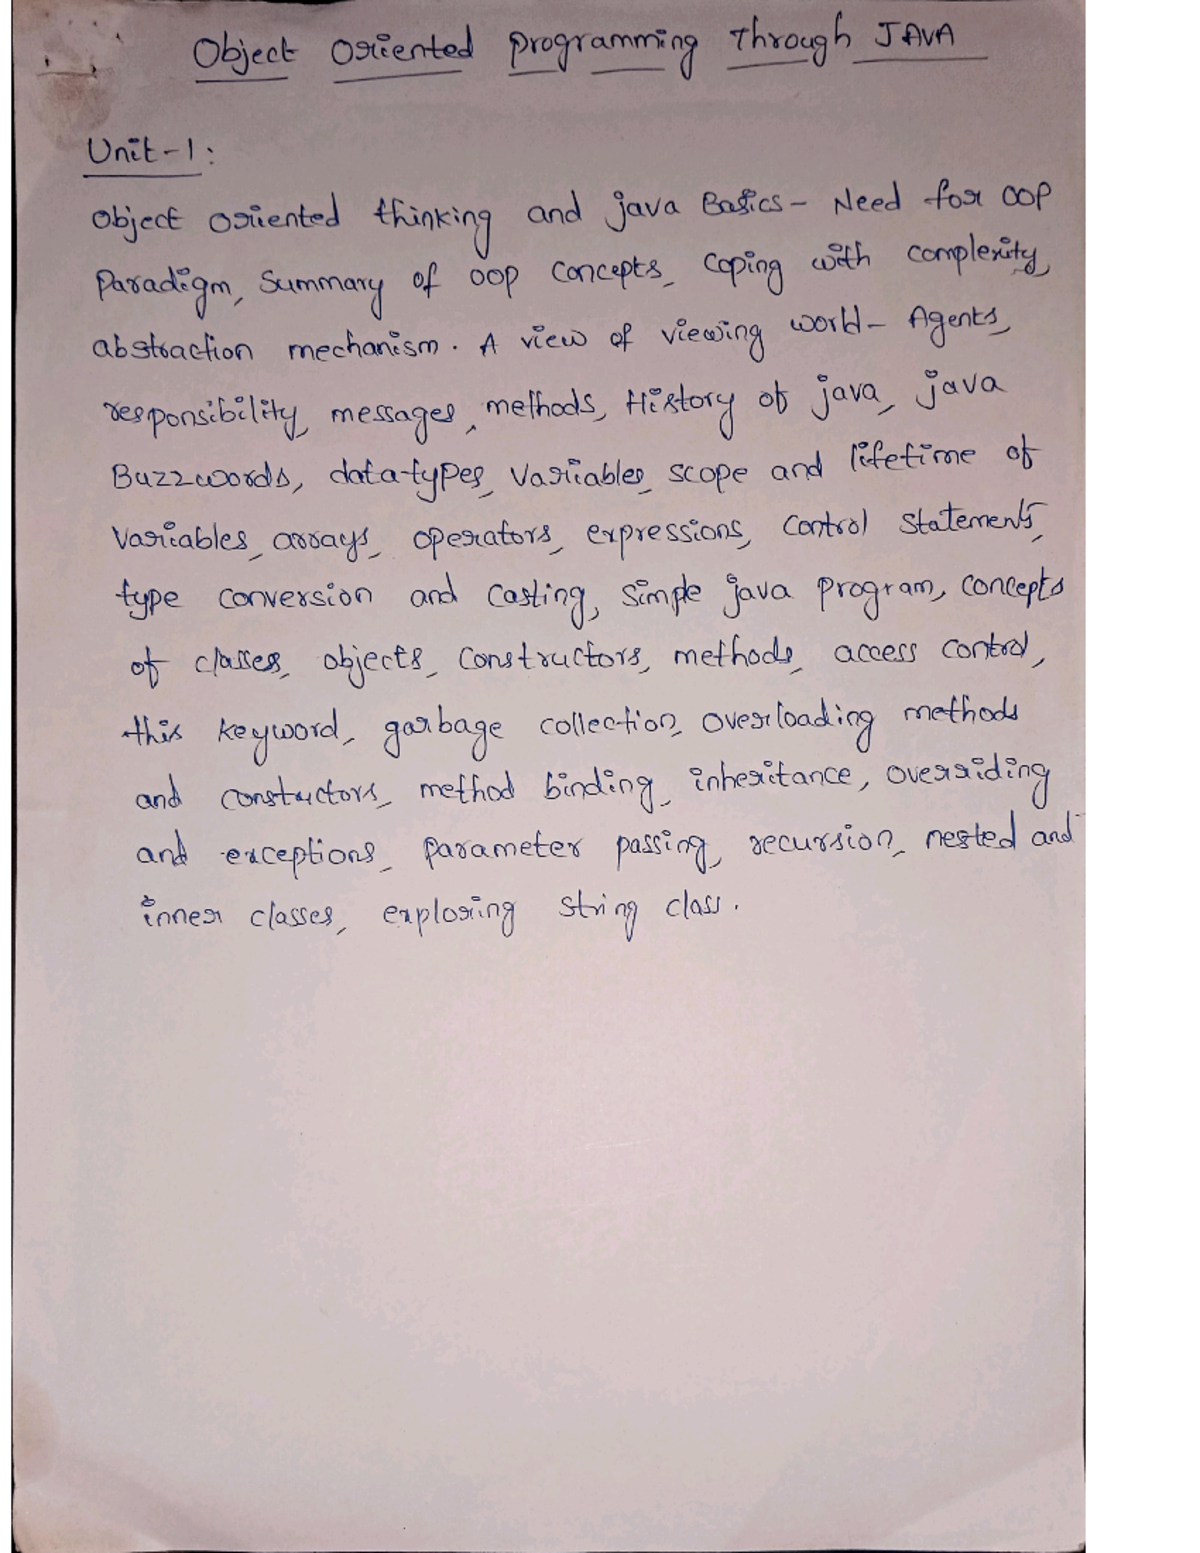 Object Oriented Programming Through JAVA
Unit-1:
Object oriented thinking and java Basics- Need for OOP
Paradigm, Summary of OOP concepts, coping with complexity,
abstraction mechanism. A view of viewing world- Agents,
responsibility, messages, methods, History of java, java
Buzzwords, datatypes, variables, scope and lifetime of
variables, arrays, operators, expressions, control statements,
type conversion and casting, simple java program, concepts
of classes, objects, constructors, methods, access control,
this keyword, garbage collection, overloading methods
and constuctors, method binding, inheritance, overriding
and exceptions, parameter passing, recursion, nested and
inner classes, exploring string class.